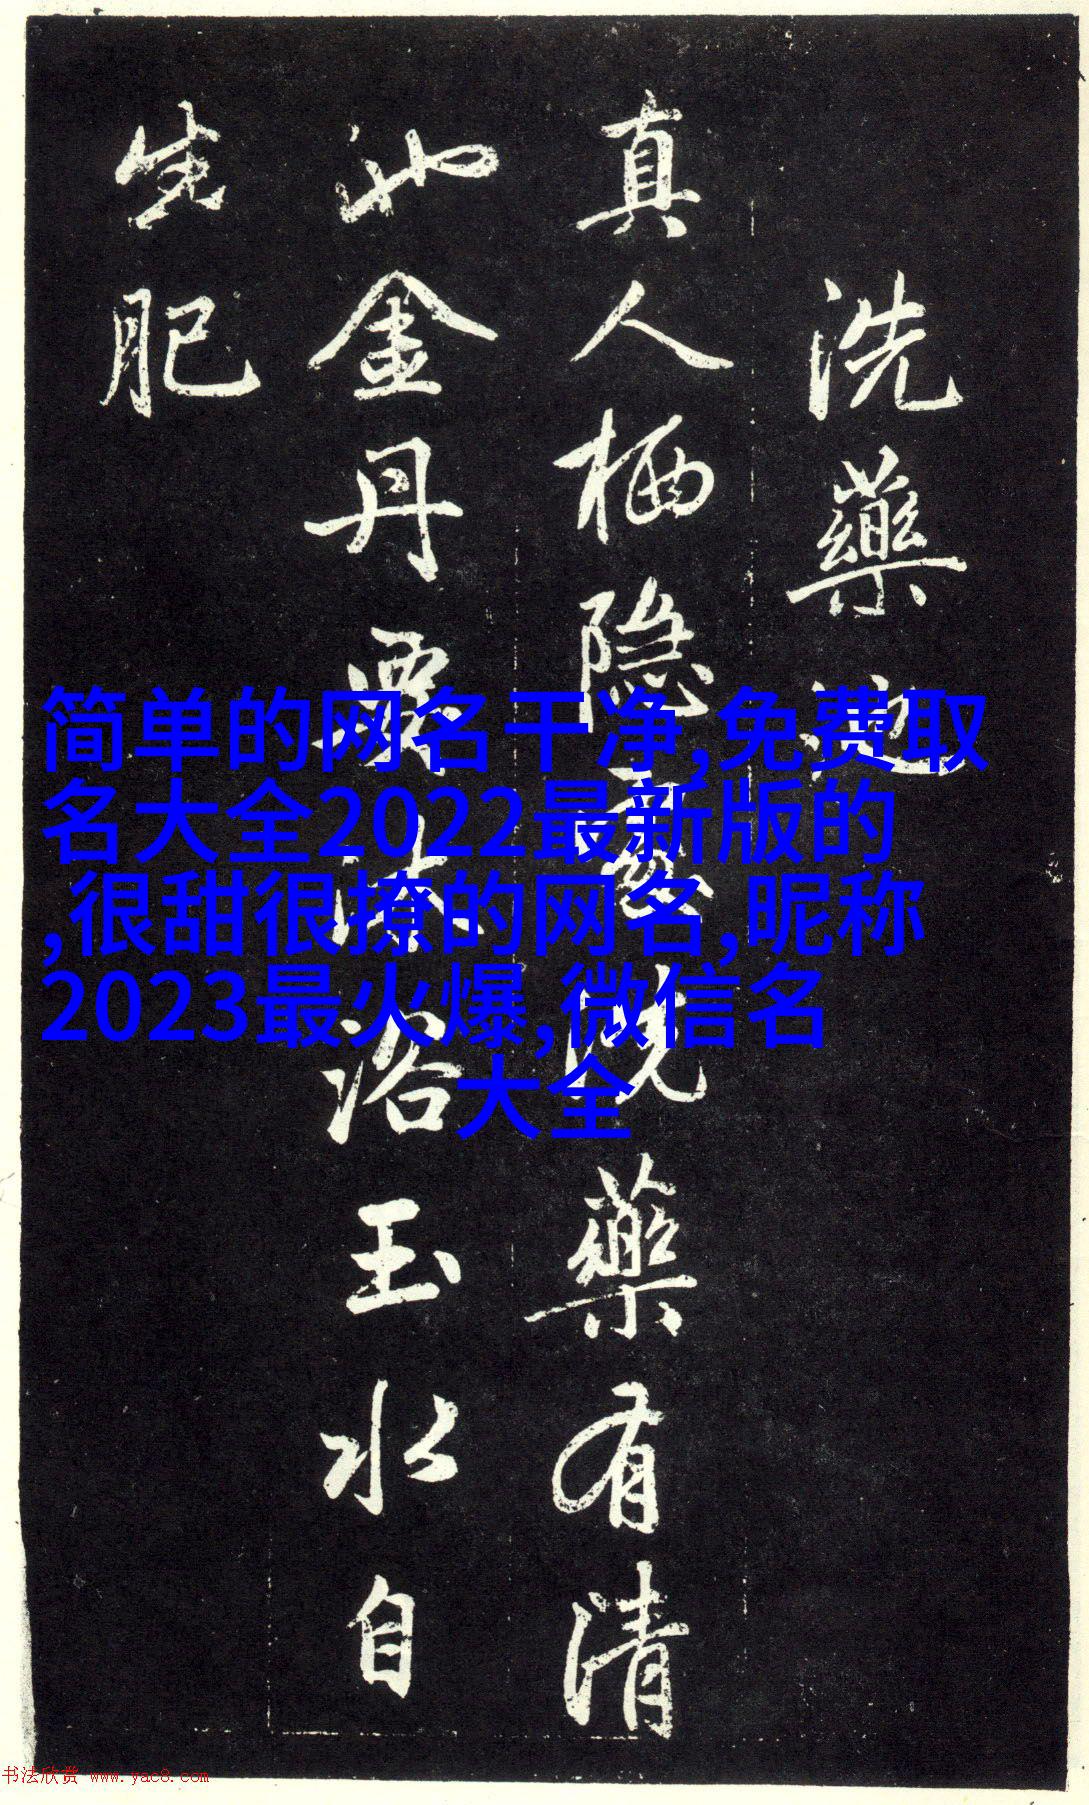 洗藥池
真人栖隐處洗藥有清
沘金丹要沐浴玉水自
生肥
简单的网名干净,免费取
名大全2022最新版的
,很甜很撩的网名,昵称
2023最火爆,微信名
大全
书法欣赏 www.yac8.com